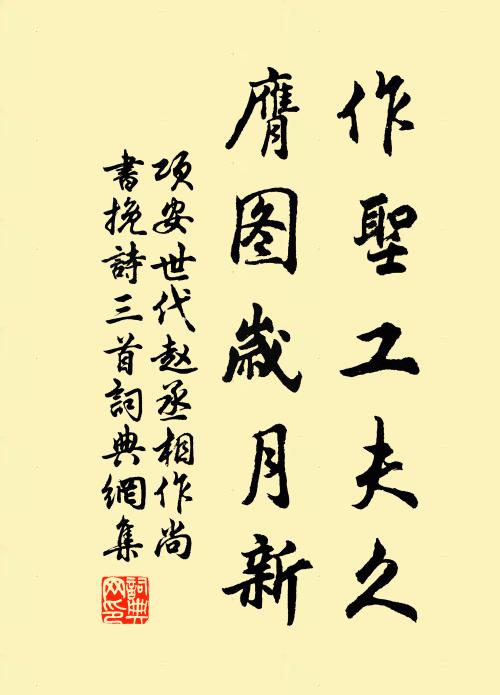 作聖工夫久
膺图歲月新
项安世代赵丞相作尚
書挽詩三首詞典網集
詞典网印